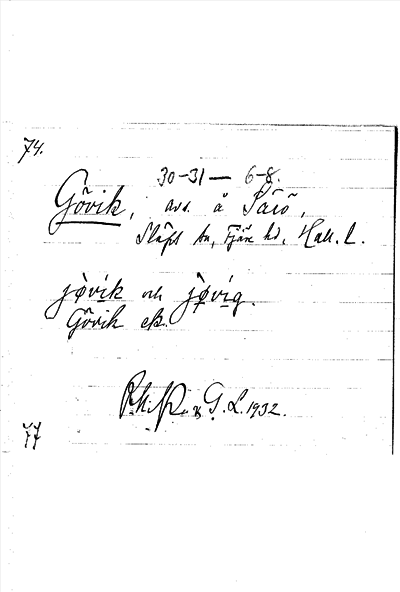 74.
30-31 — 6-8.
Gövik, avs. å Särö,
Släps sn, Fjäre hd, Hall. l.
jø̀vik och jø̀vig.
Gövik ek.
G. L. 1932.